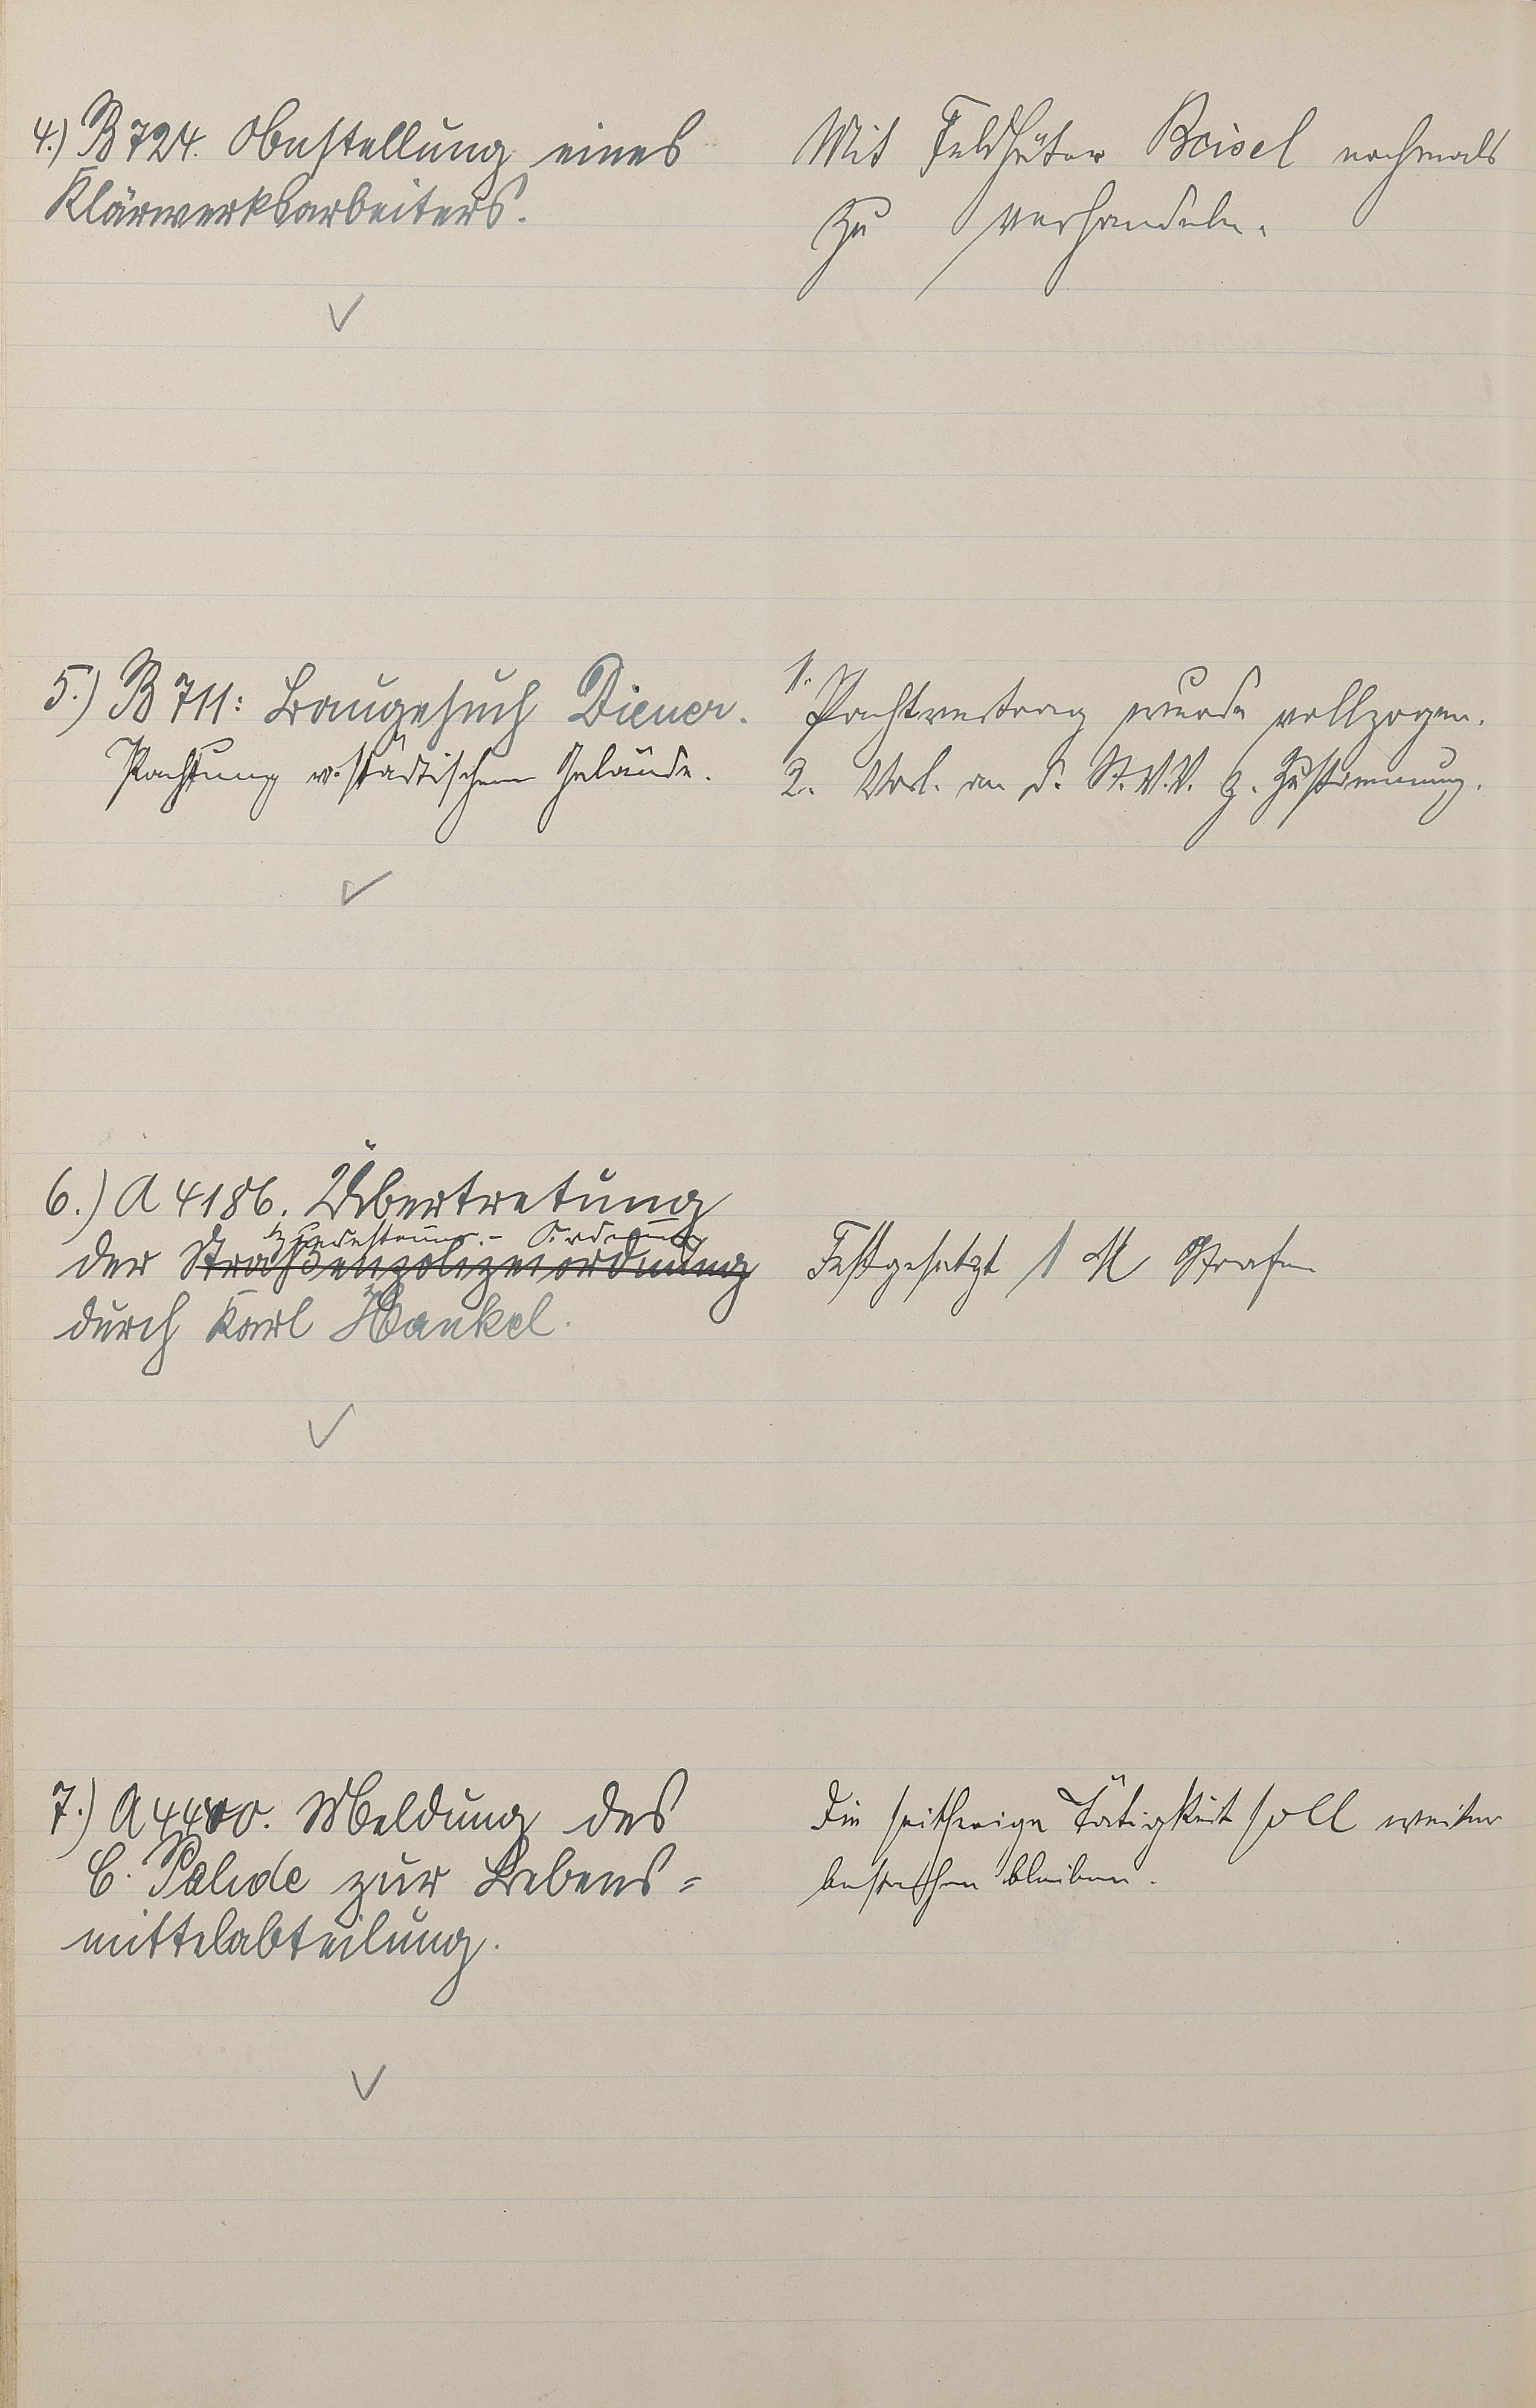 4.) B 724. Bestellung eines
Klärwerksarbeiters.
Mit Feldhüter Beisel nochmals
zu verhandeln.
5.) B 711: Baugesuch Diener.
Pachtung v. städtischem Gelände.
1. Pachtvertrag wurde vollzogen.
2. Vorl. an d. St.V.V. z. Zustimmung.
6.) A 4186. Übertretung
der Straßenpolizeiordnung
durch Karl Hankel.
Festgesetzt 1 M Strafe
7.) A 4400. Meldung des
C. Pahde zur Lebens=
mittelabteilung.
Die seitherige Tätigkeit soll weiter
bestehen bleiben.